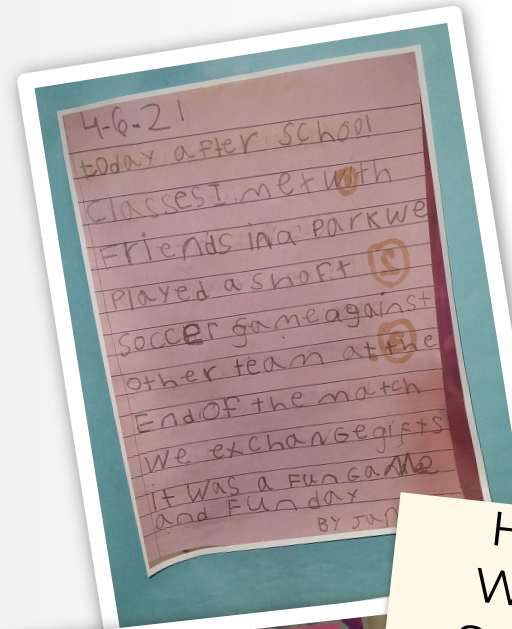 4-6-21
today after school
classes I met with
Friends in a Park we
Played a shoft
soccer game against
other team at the
End of the match
we exchange gifts
It was a Fun Game
and Fun day
BY